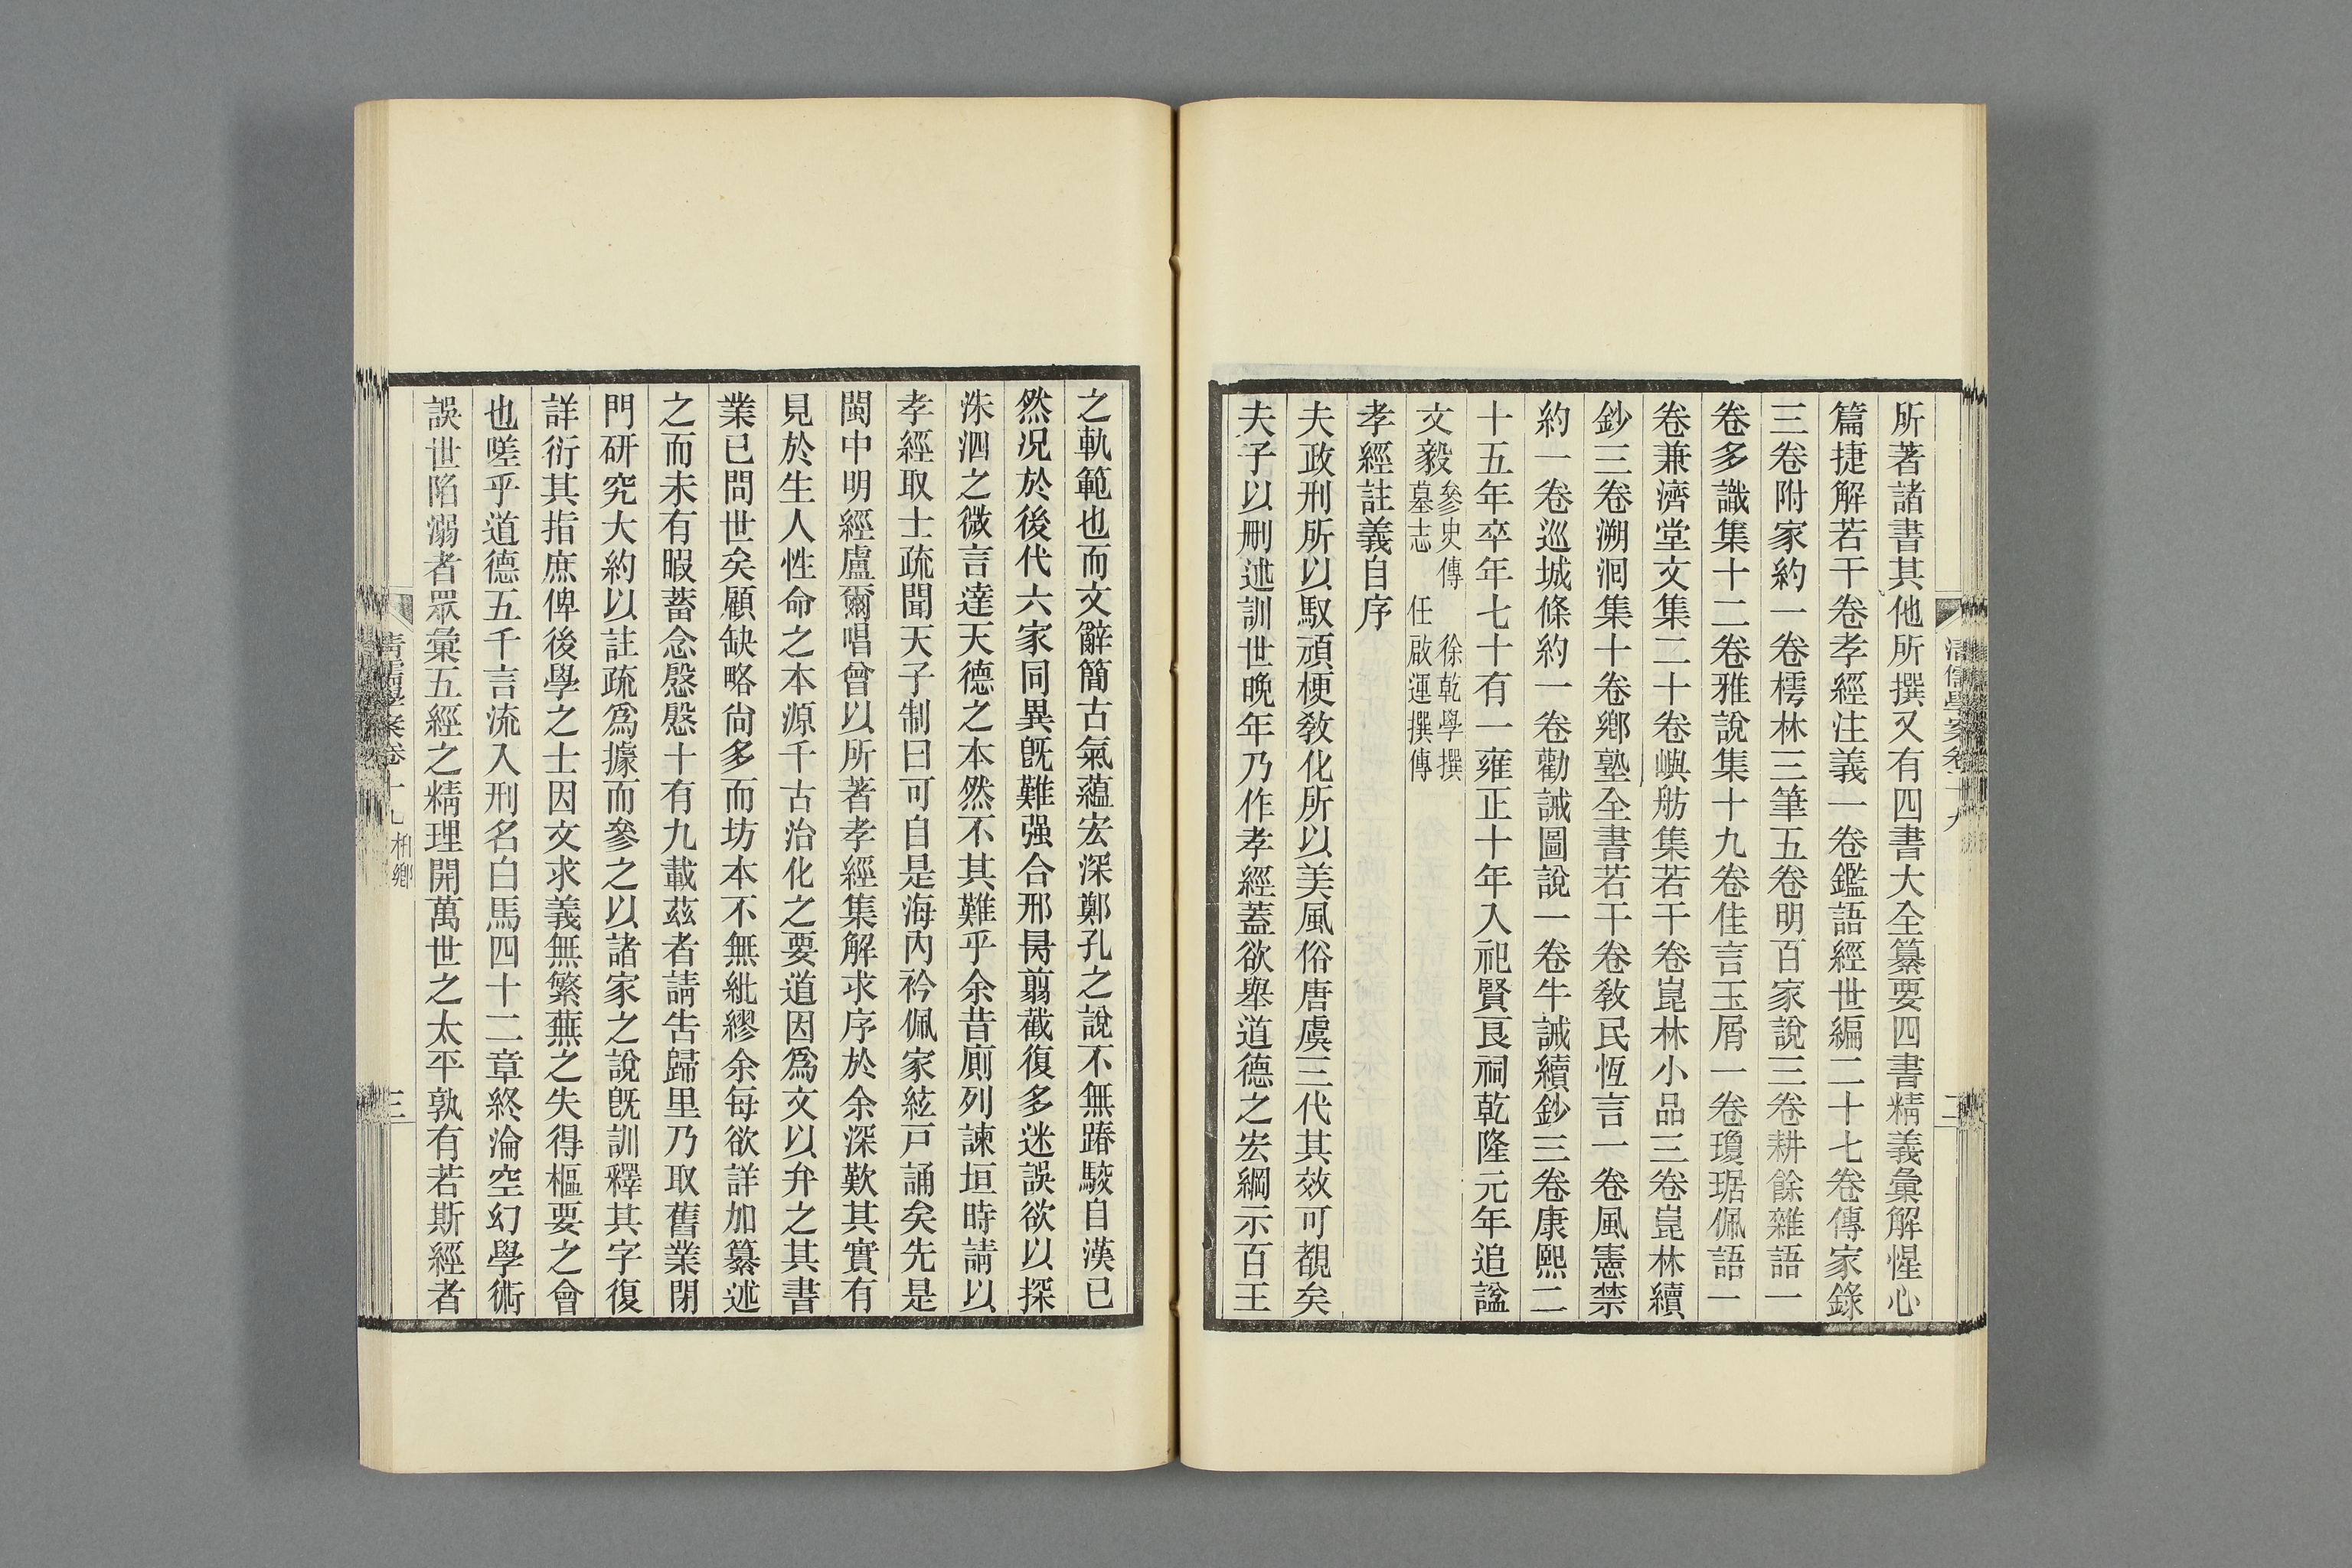 所著諸書其他所撰又有四書大全纂要四書精義彙解惺心
篇捷解若干卷孝經注義一卷鑑語經世編二十七卷傳家錄
三卷附家約一卷樗林三筆五卷明百家說三卷耕餘雜語一
卷多識集十二卷雅說集十九卷佳言玉屑一卷瓊琚佩語一
卷兼濟堂文集二十卷嶼舫集若干卷崑林小品三卷崑林續
鈔三卷溯洄集十卷鄉塾全書若干卷敎民恆言一卷風憲禁
約一卷巡城條約一卷勸誡圖說一卷牛誡續鈔三卷康熙二
十五年卒年七十有一雍正十年入祀賢良祠乾隆元年追諡
文毅參史傳 徐乾學撰墓志 任啟運撰傳
孝經註義自序
夫政刑所以馭頑梗敎化所以美風俗唐虞三代其效可覩矣
夫子以刪述訓世晚年乃作孝經蓋欲舉道德之宏綱示百王
之軌範也而文辭簡古氣蘊宏深鄭孔之說不無踳駮自漢已
然況於後代六家同異旣難强合邢昺翦截復多迷誤欲以探
洙泗之微言達天德之本然不其難乎余昔廁列諫垣時請以
孝經取士疏聞天子制曰可自是海內衿佩家絃戸誦矣先是
閩中明經盧爾唱曾以所著孝經集解求序於余深歎其實有
見於生人性命之本源千古治化之要道因爲文以弁之其書
業已問世矣顧缺略尙多而坊本不無紕繆余每欲詳加纂述
之而未有暇蓄念慇慇十有九載茲者請告歸里乃取舊業閉
門硏究大約以註疏爲據而參之以諸家之說旣訓釋其字復
詳衍其指庶俾後學之士因文求義無繁蕪之失得樞要之會
也嗟乎道德五千言流入刑名白馬四十二章終淪空幻學術
誤世陷溺者眾彙五經之精理開萬世之太平孰有若斯經者
清儒學案卷十九 柏鄉 三